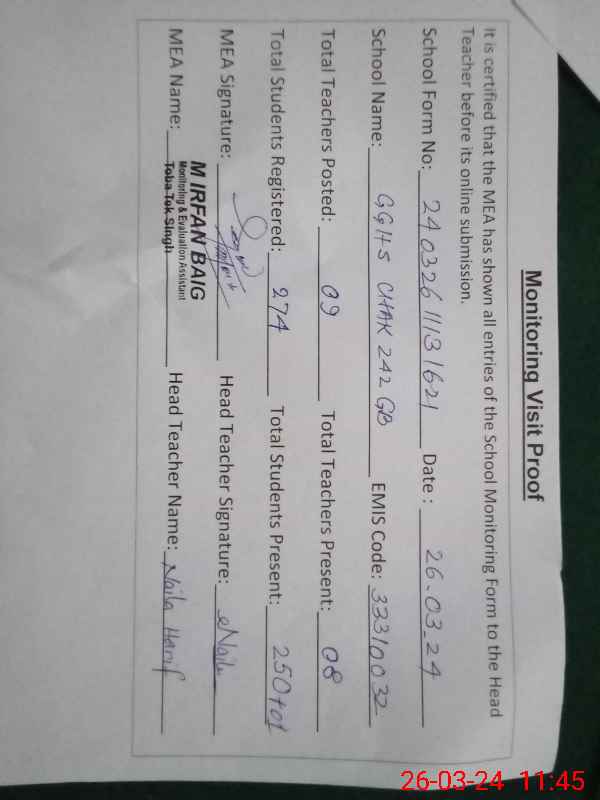 Monitoring Visit Proof
It is certified that the MEA has shown all entries of the School Monitoring Form to the Head
Teacher before its online submission.
School Form No: 240326111131621 Date : 26-03-24
School Name: GGHS CHAK 242 GB EMIS Code: 33310032
Total Teachers Posted: 09 Total Teachers Present: 08
Total Students Registered: 274 Total Students Present: 250+01
MEA Signature: Head Teacher Signature: Naila
M IRFAN BAIG
Monitoring & Evaluation Assistant
MEA Name: Toba Tek Singh Head Teacher Name: Naila Hanif
26-03-24 11:45